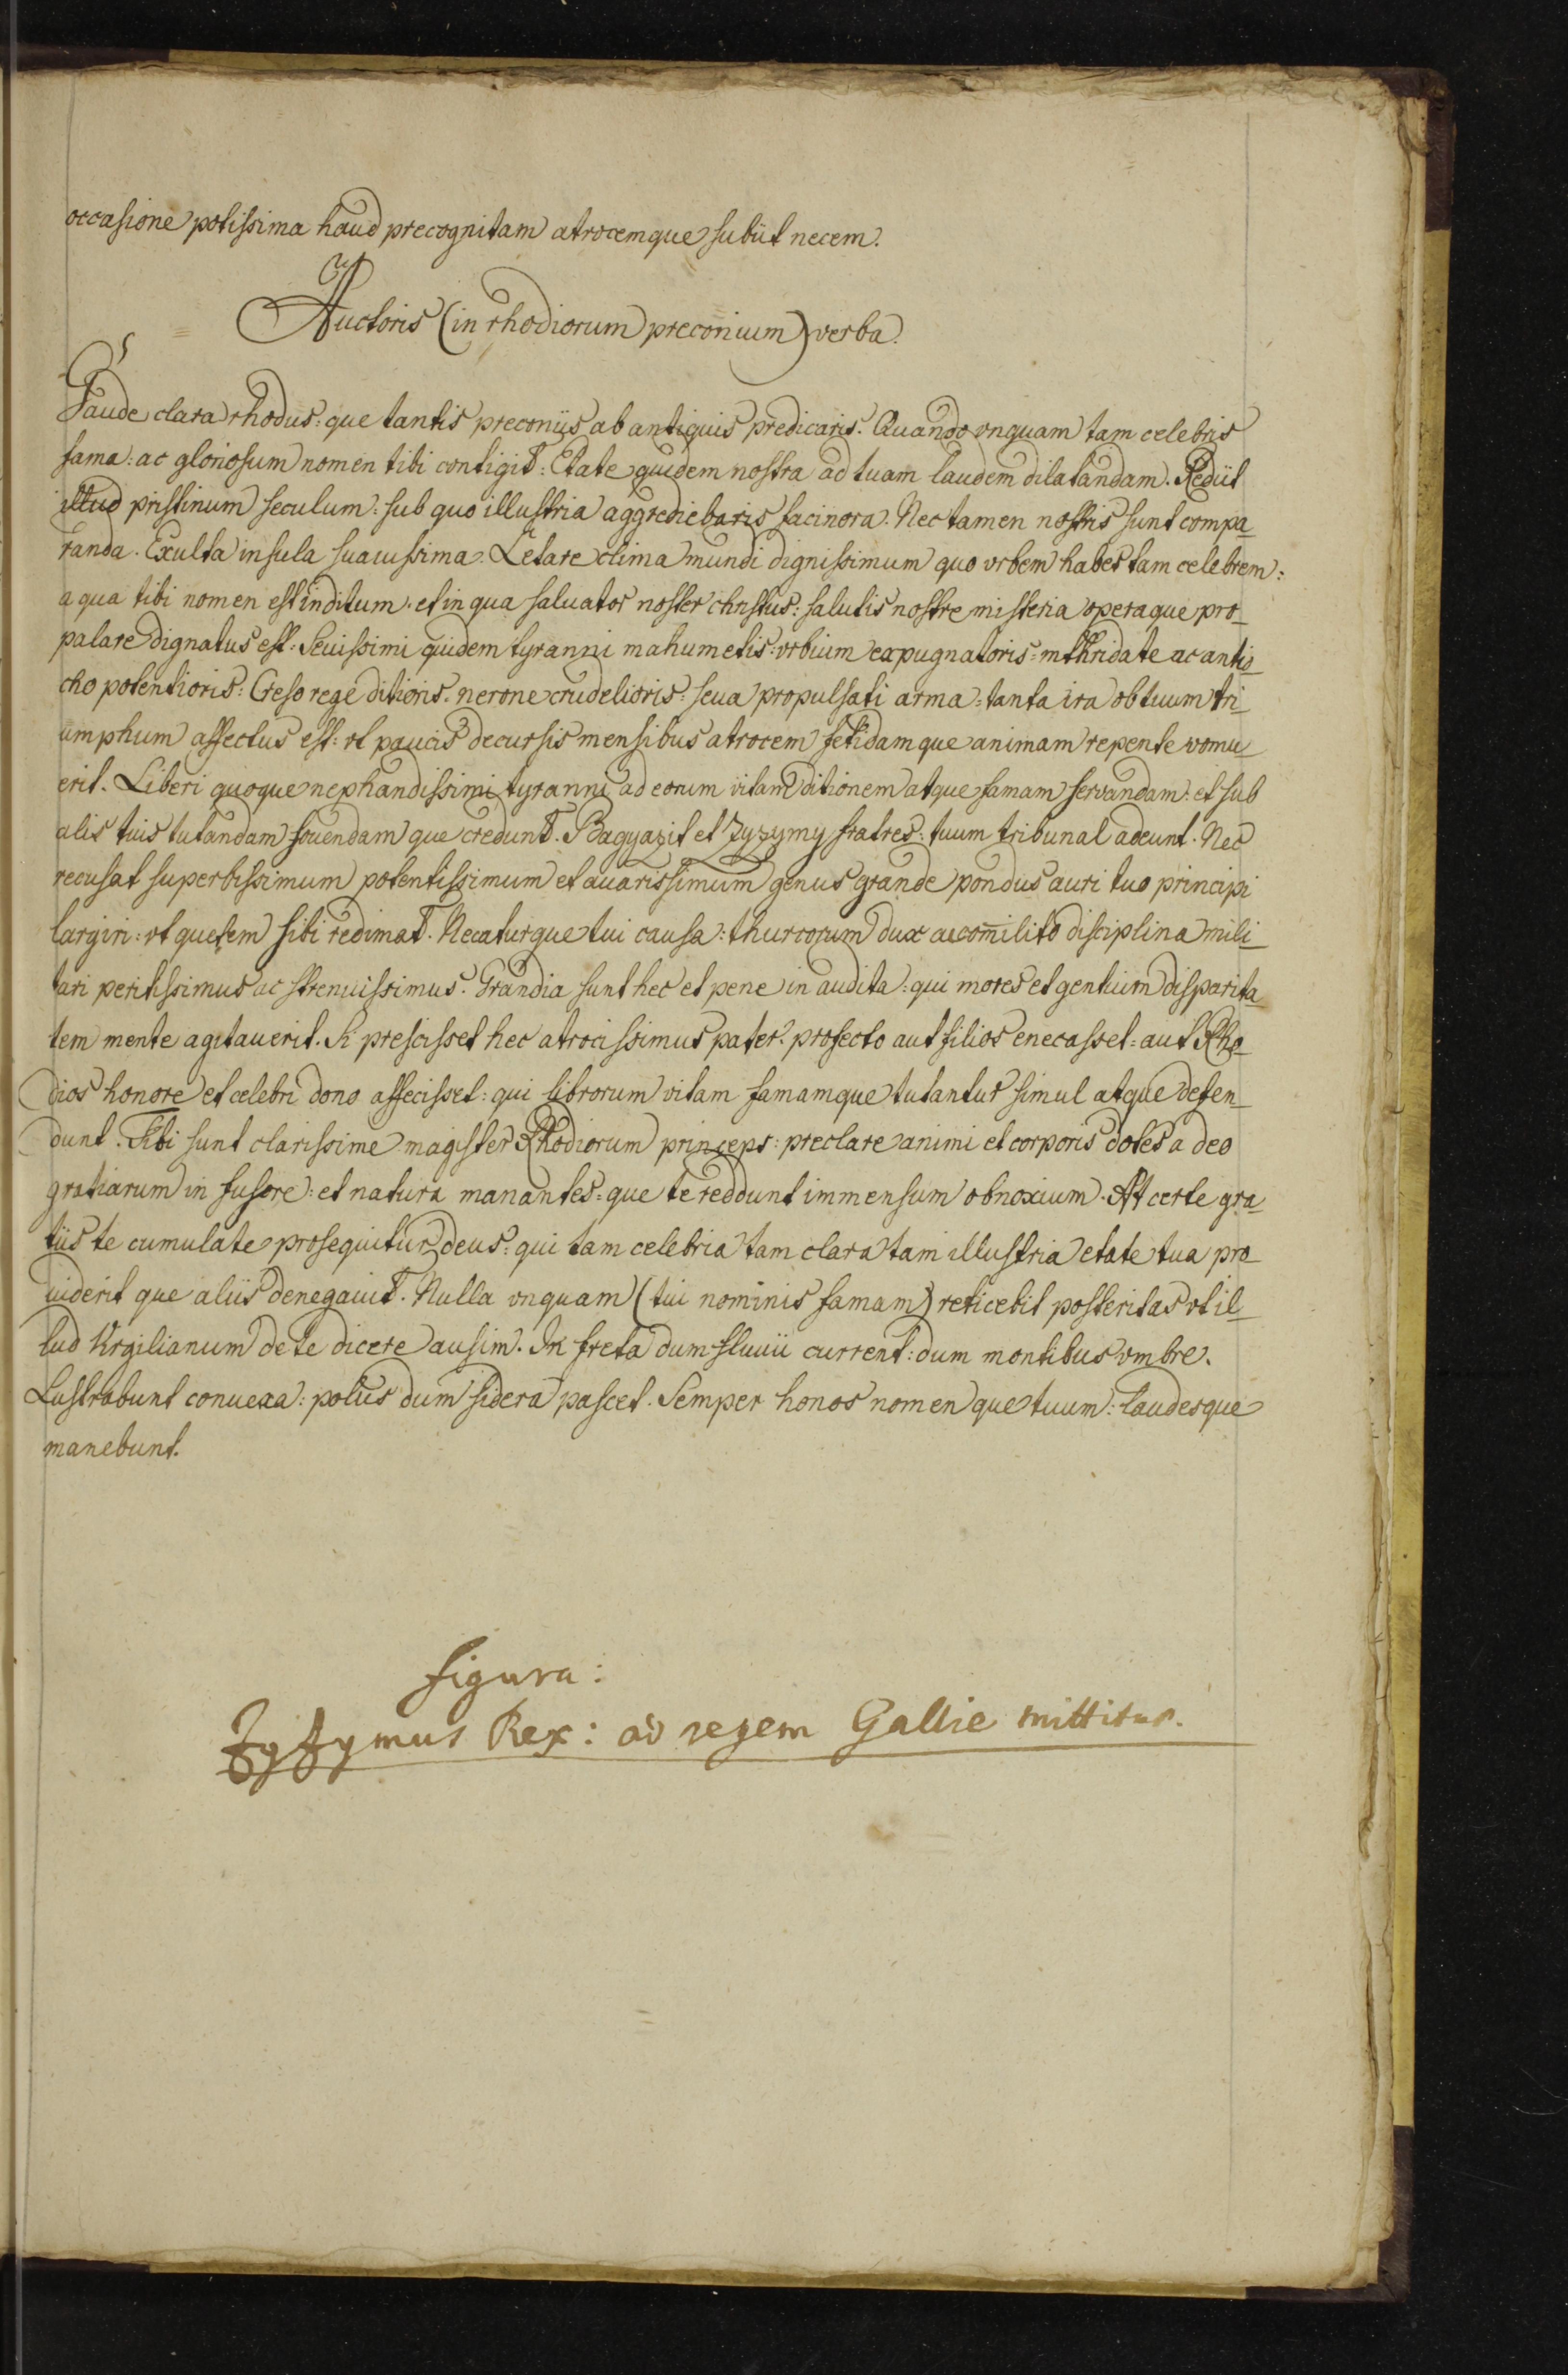 occasione potissima haud precognitam atrocemque subiit necem.
Auctoris (in rhodiorum preconium) verba.
Gaude clara rhodus: que tantis preconiis ab antiquis predicaris. Quando vnquam tam celebris
fama: ac gloriosum nomen tibi contigit: Etate quidem nostra ad tuam laudem dilatandam. Rediit
illud pristinum seculum: sub quo illustria aggrediebaris facinora. Nec tamen nostris sunt compa_
randa. Exulta insula suauissima. Letare clima mundi dignissimum quo vrbem habes tam celebrem:
a qua tibi nomen est inditum: et in qua saluator noster christus: salutis nostre misteria operaque pro_
palare dignatus est. Seuissimi quidem tyranni mahumetis: vrbium expugnatoris: mthridate ac antio_
cho potentioris: Creso rege ditioris. nerone crudelioris: seua propulsati arma: tanta ira ob tuum tri_
umphum affectus est: vt paucis decursis mensibus atrocem fetidamque animam repente vomu_
erit. Liberi quoque nephandissimi tyranni ad eorum vitam ditionem atque famam servandam: et sub
alis tuis tutandam fouendam que credunt. Bagyazit et Zyzymy fratres: tuum tribunal adeunt. Nec
recusat superbissimum potentissimum et auarissimum genus grande pondus auri tuo principi
largiri: vt quetem sibi redimat. Necaturque tui causa: thurcorum dux ac comilito disciplina mili_
tari peritissimus ac strenuissimus. Grandia sunt hec et pene in audita: qui mores et gentium disparita_
tem mente agitauerit. Si prescisset hec atrocissimus pater. profecto aut filios enecasset: aut Rho_
dios honore et celebri dono affecisset: qui librorum vitam famamque tutantur simul atque defen_
dunt. Tibi sunt clarissime magister Rhodiorum princeps: preclare animi et corporis dotes a deo
gratiarum in fusore: et natura manantes: que te reddunt immensum obnoxium. At certe gra_
tiis te cumulate prosequitur deus: qui tam celebria tam clara tam illustria etate tua pro_
uiderit que aliis denegauit. Nulla vnquam (tui nominis famam) reticebit posteritas vt il_
lud Virgilianum de te dicere ausim. In freta dum fluuii current: dum montibus vmbre.
Lustrabunt conuexa: polus dum sidera pascet. Semper honos nomen que tuum: laudesque
manebunt.
figura:
Zyzymus Rex: ad regem Gallie mittitur.